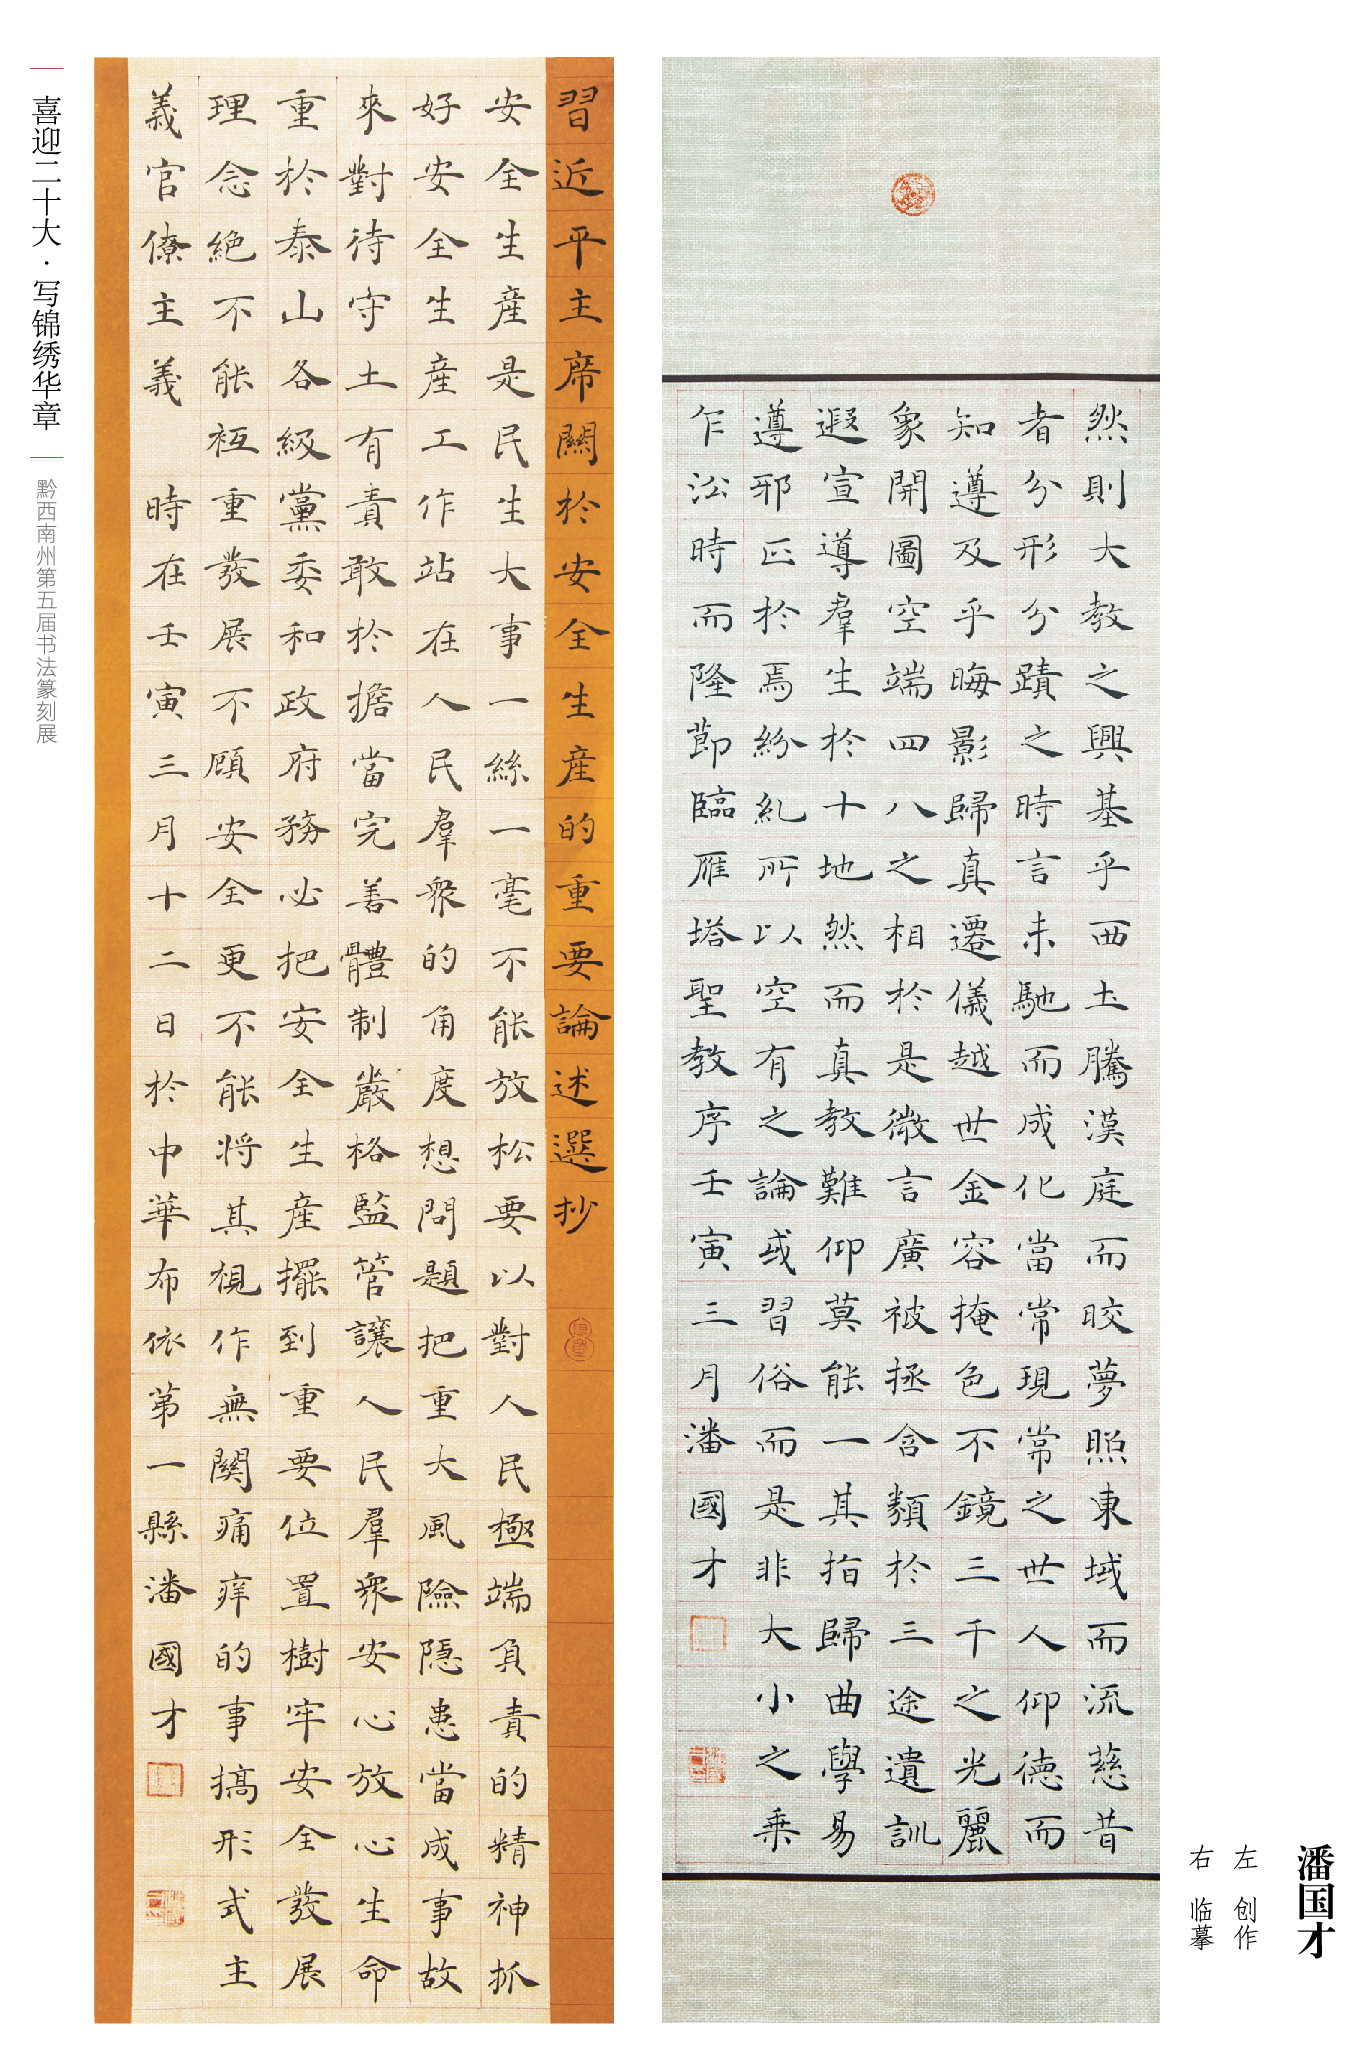 潘国才
左 创作
右 临摹
然則大教之興基乎西土騰漢庭而晈夢照東域而流慈昔
者分形分蹟之時言未馳而成化當常現常之世人仰德而
知遵及乎晦影歸真遷儀越世金容掩色不鏡三千之光麗
象開圖空端四八之相於是微言廣被拯含類於三途遺訓
遐宣導羣生於十地然而真教難仰莫能一其指歸曲學易
遵邪正於焉紛糺所以空有之論或習俗而是非大小之乘
乍沿時而隆節臨雁塔聖教序壬寅三月潘國才
習近平主席關於安全生産的重要論述選抄
安全生産是民生大事一絲一毫不能放松要以對人民極端負責的精神抓
好安全生産工作站在人民羣衆的角度想問題把重大風險隱患當成事故
來對待守土有責敢於擔當完善體制嚴格監管讓人民羣衆安心放心生命
重於泰山各級黨委和政府務必把安全生産擺到重要位置樹牢安全發展
理念絕不能衹重發展不顧安全更不能將其視作無關痛痒的事搞形式主
義官僚主義 時在壬寅三月十二日於中華布依第一縣潘國才
喜迎二十大·写锦绣华章
黔西南州第五届书法篆刻展